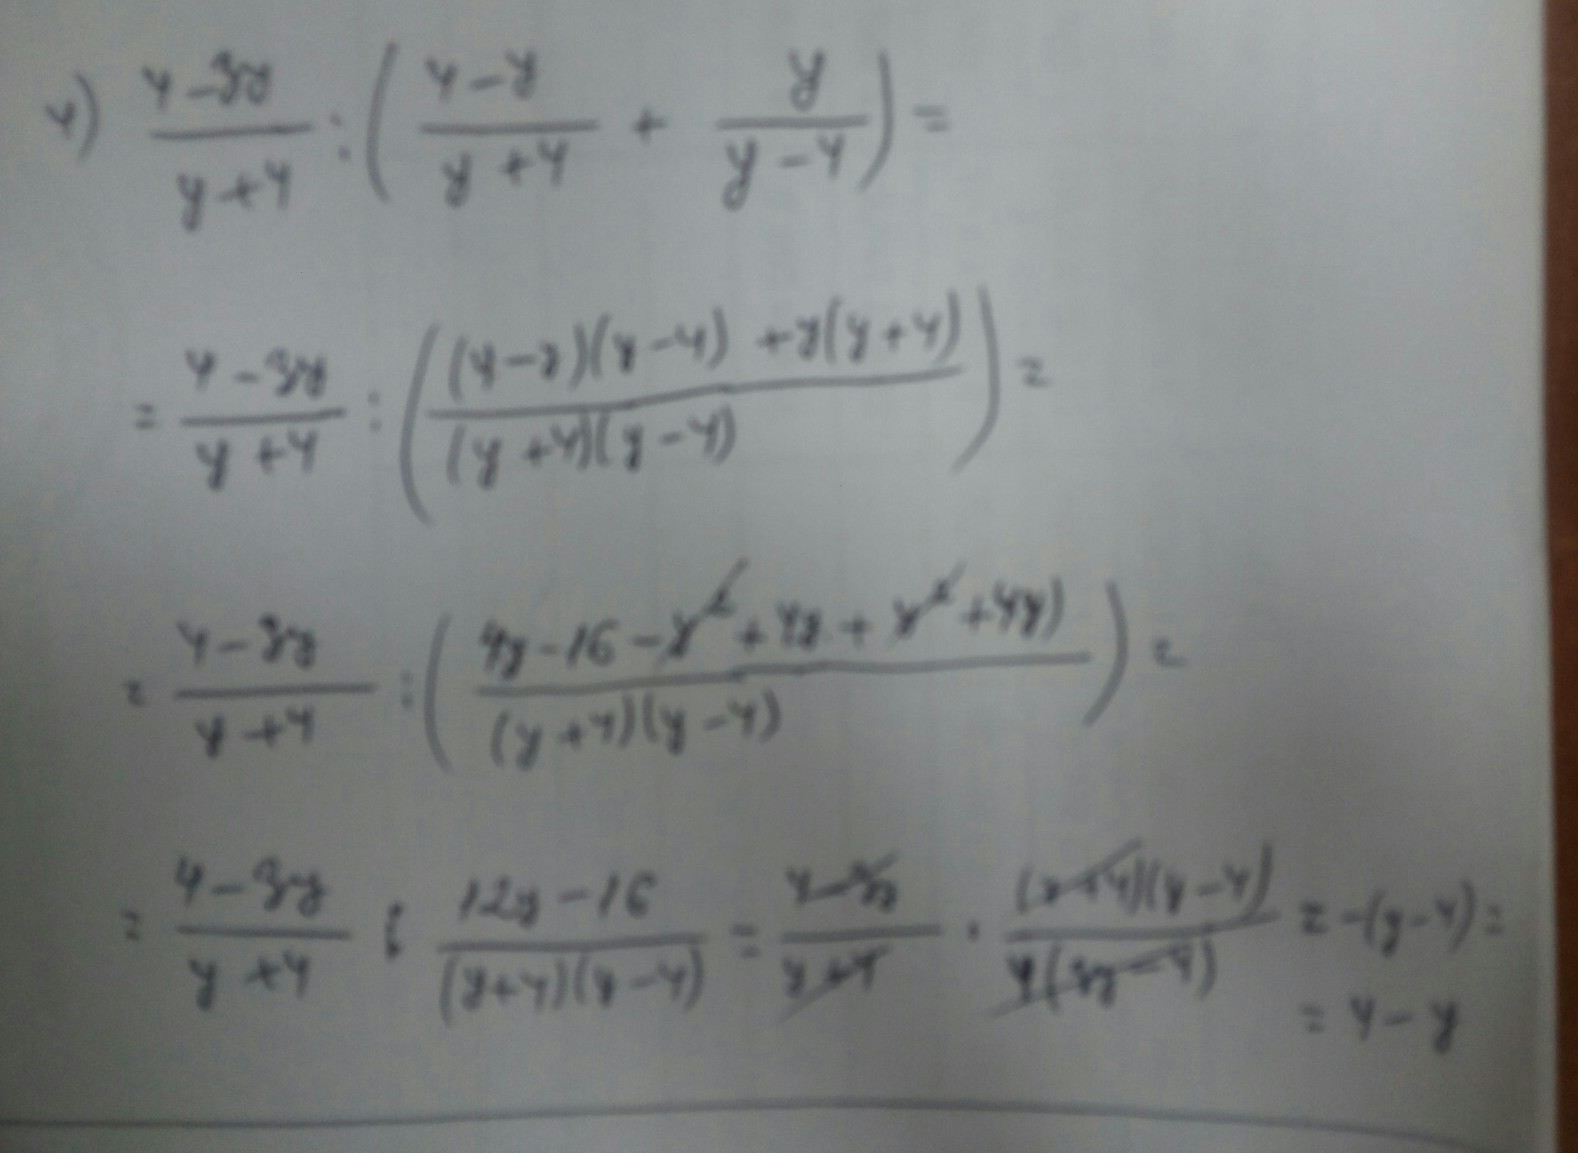 4) (4-3y)/(y+4) : ( (4-y)/(y+4) + y/(y-4) ) =
= (4-3y)/(y+4) : ( ((4-y)(y-4) + y(y+4))/((y+4)(y-4)) ) =
= (4-3y)/(y+4) : ( (4y-16-y²+4y+y²+4y))/((y+4)(y-4)) ) =
= (4-3y)/(y+4) : (12y-16)/((y+4)(y-4)) = (4-3y)/(y+4) · ((y+4)(y-4))/(4(3y-4)) = -(y-4) =
= 4-y